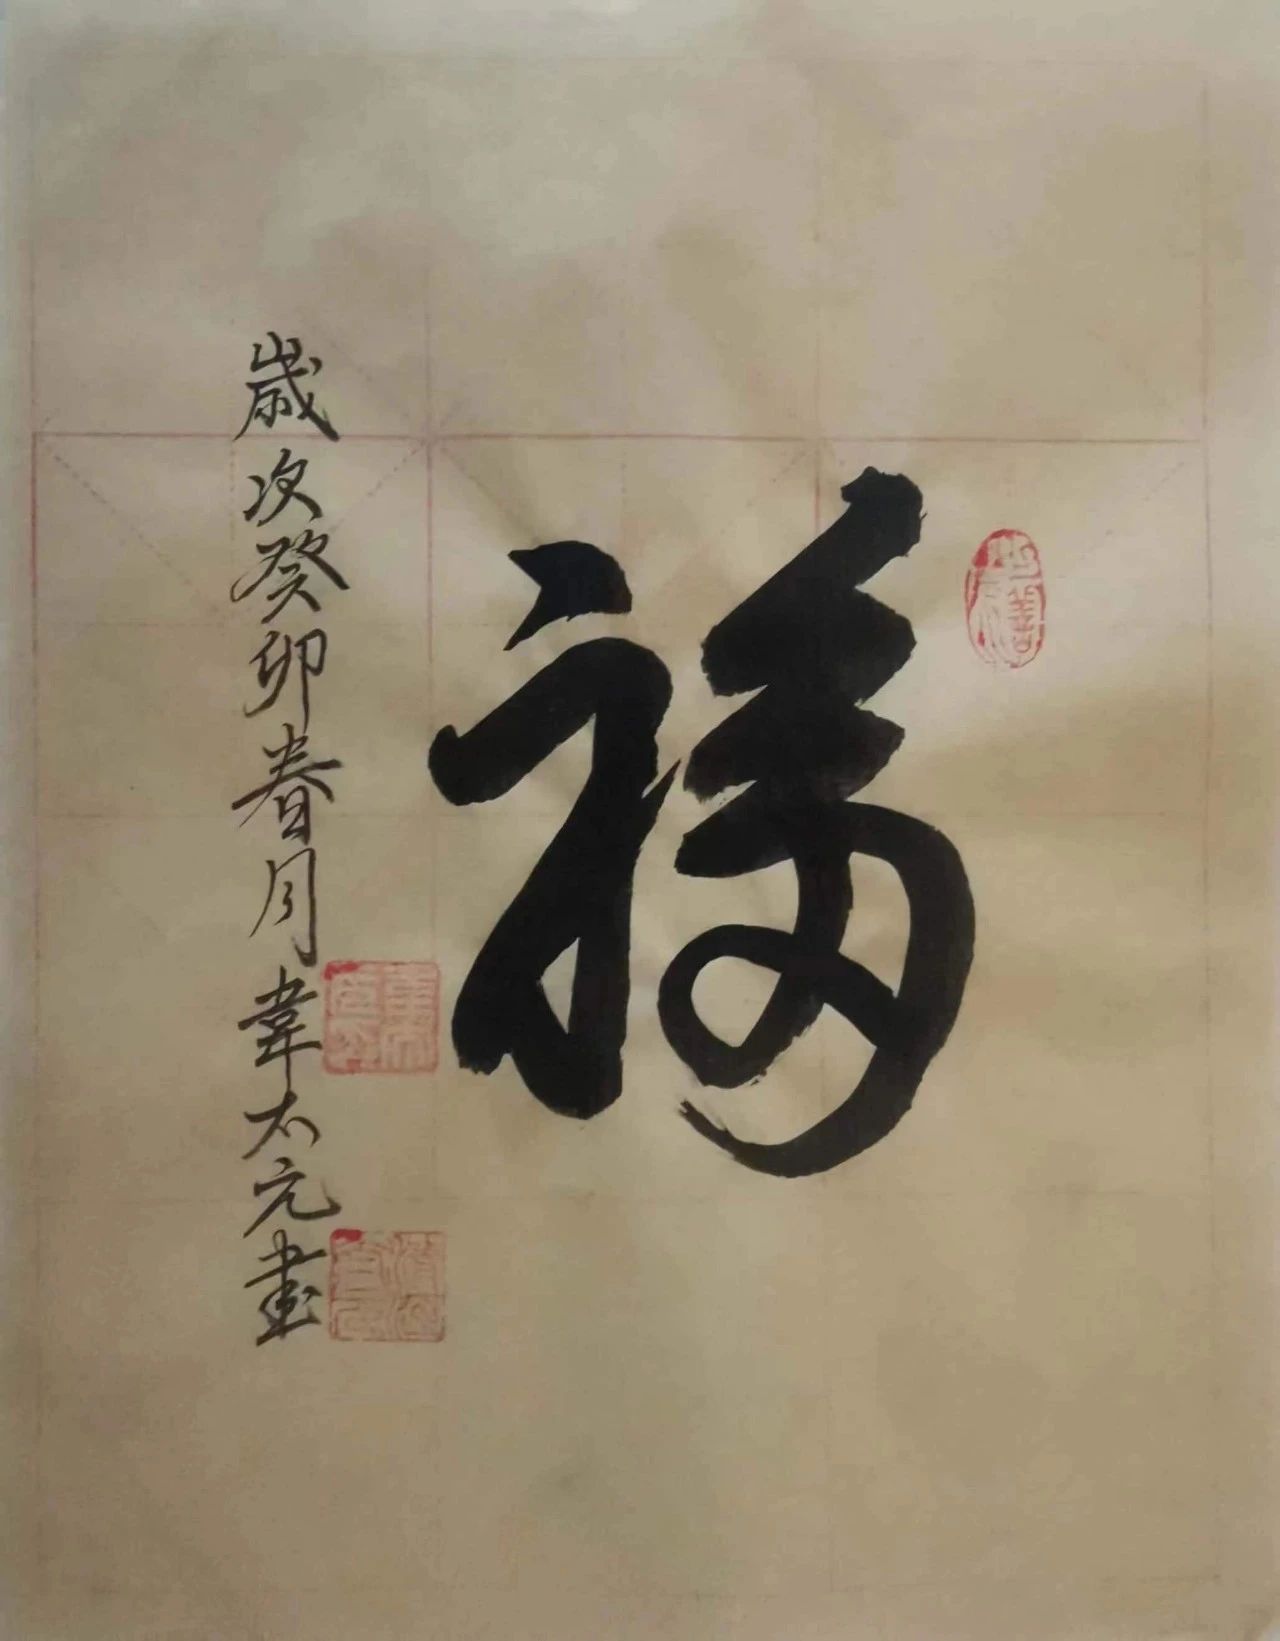 福
歳次癸卯春月韋太元書